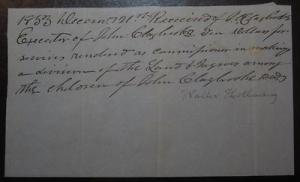 1853 Decem 21st Received of R Claybrook
Executor of John Claybrook ten dollars for
services rendered as commissioner in making
a division of the Land & negroes among
the children of John Claybrooke
Walter